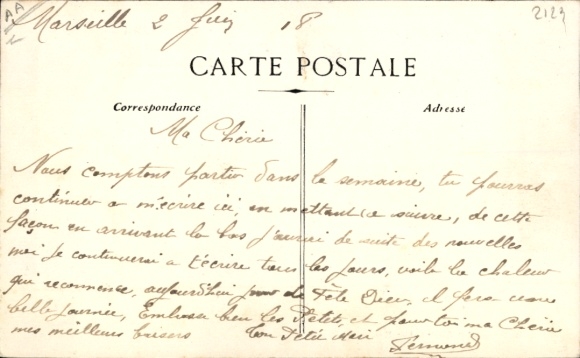 AA
Marseille 2 Juin 18
2129
CARTE POSTALE
Correspondance
Adresse
Ma Chérie
Nous comptons partir dans la semaine, tu pourras
continuer a m'écrire ici, en mettant (a suivre, de cette
façon en arrivant la bas j'aurai de suite des nouvelles
moi je continuerai a t'écrire tous les jours, voila la chaleur
qui recommence, aujourd'hui jour de Fête Dieu, il fera une
belle journée, Embrasse bien les Petits, et pour toi ma Chérie
mes meilleurs baisers Ton Petit Mari
Fernand